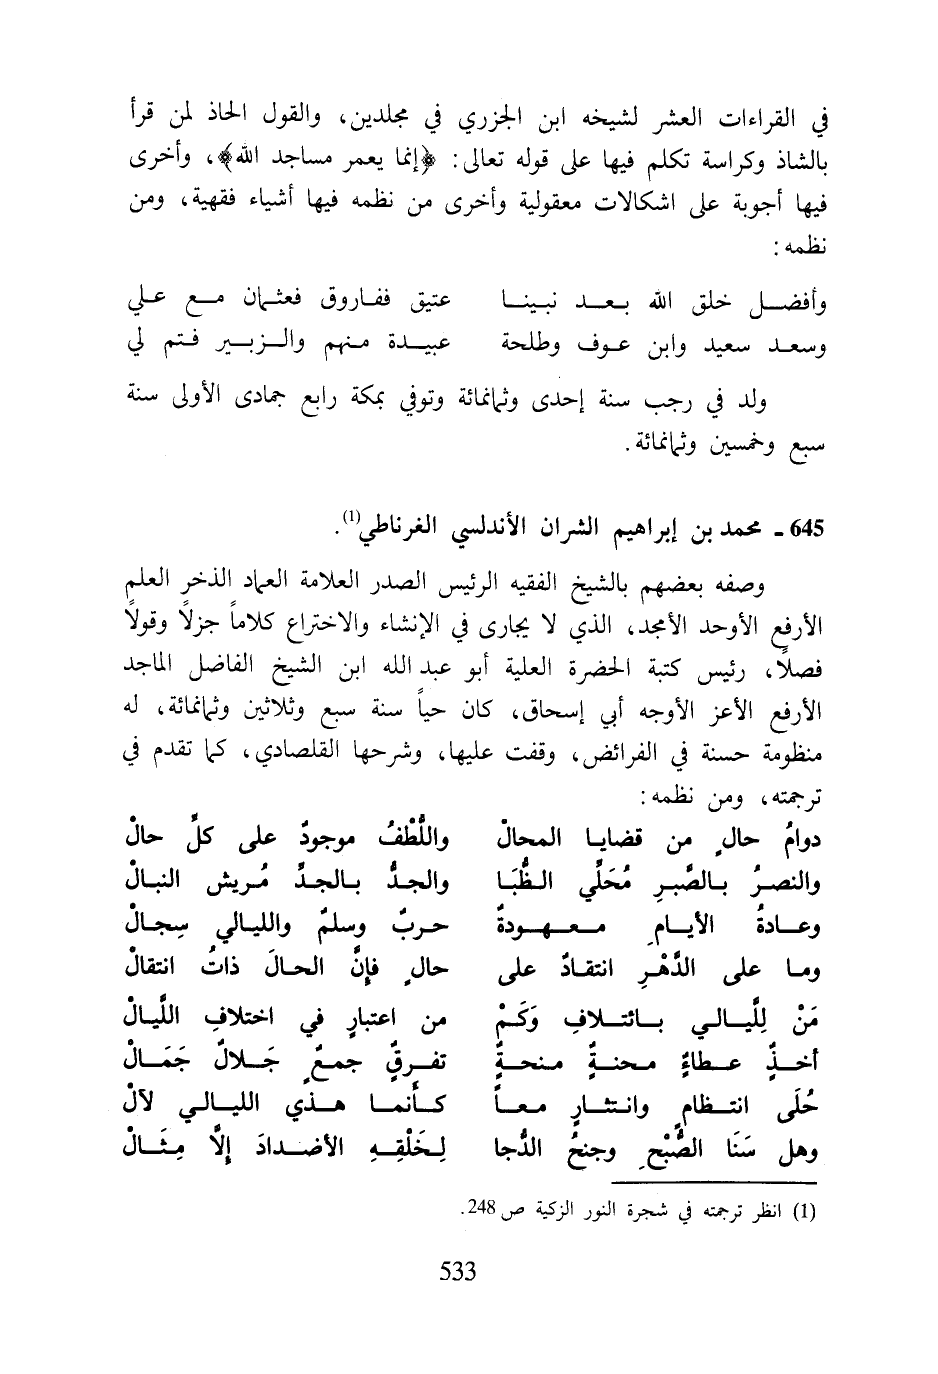 في القراءات العشر لشيخه ابن الجزري في مجلدين، والقول الحاذ لمن قرأ
بالشاذ وكراسة تكلم فيها على قوله تعالى: ﴿إنما يعمر مساجد الله﴾، وأخرى
فيها أجوبة على اشكالات معقولية وأخرى من نظمه فيها أشياء فقهية، ومن
نظمه:
وأفضل خلق الله بعد نبينا عتيق ففاروق فعثمان مع علي
وسعد سعيد وابن عوف وطلحة عبيدة منهم والزبير فتم لي
ولد في رجب سنة إحدى وثمانمائة وتوفي بمكة رابع جمادى الأولى سنة
سبع وخمسين وثمانمائة.
645 ـ محمد بن إبراهيم الشران الأندلسي الغرناطي(1).
وصفه بعضهم بالشيخ الفقيه الرئيس الصدر العلامة العماد الذخر العلم
الأرفع الأوحد الأمجد، الذي لا يجارى في الإنشاء والاختراع كلاماً جزلاً وقولاً
فصلاً، رئيس كتبة الحضرة العلية أبو عبد الله ابن الشيخ الفاضل الماجد
الأرفع الأعز الأوجه أبي إسحاق، كان حياً سنة سبع وثلاثين وثمانمائة، له
منظومة حسنة في الفرائض، وقفت عليها، وشرحها القلصادي، كما تقدم في
ترجمته، ومن نظمه:
دوامُ حالٍ من قضايا المحالْ واللُّطْفُ موجودٌ على كلِّ حالْ
والنصرُ بالصَّبرِ مُحَلَّي الظُّبَا والجدُّ بالجدِّ مُريش النبالْ
وعادةُ الأيامِ معهودةٌ حربٌ وسلمٌ والليالي سِجالْ
وما على الدَّهْرِ انتقادٌ على حالٍ فإنَّ الحالَ ذاتُ انتقالْ
مَنْ لِلَّيالي بائتلافٍ وَكَمْ من اعتبارٍ في اختلافِ اللَّيالْ
أخذٌ عطاءٌ محنةٌ منحةٌ تفرقٌ جمعٌ جَلالٌ جَمَالْ
حُلَى انتظامٍ وانتثارٍ معاً كأنما هذي الليالي لآلْ
وهل سَنَا الصُّبْحِ وجنحُ الدُّجا لِخَلْقِهِ الأضدادَ إلَّا مِثَالْ
(1) انظر ترجمته في شجرة النور الزكية ص 248.
533